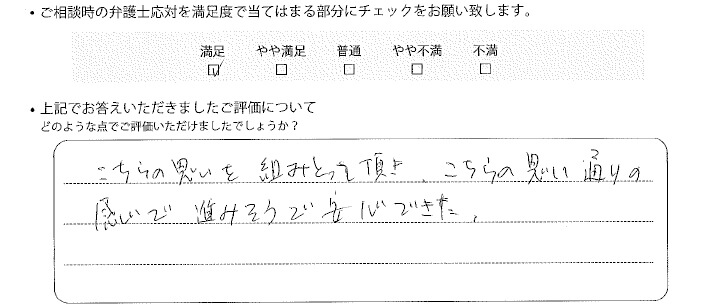 ・ご相談時の弁護士応対を満足度で当てはまる部分にチェックをお願い致します。
満足 やや満足 普通 やや不満 不満
☑ □ □ □ □
・上記でお答えいただきましたご評価について
どのような点でご評価いただけましたでしょうか？
こちらの思いを組みとって頂き、こちらの思い通りの
感じで進みそうで安心できた。